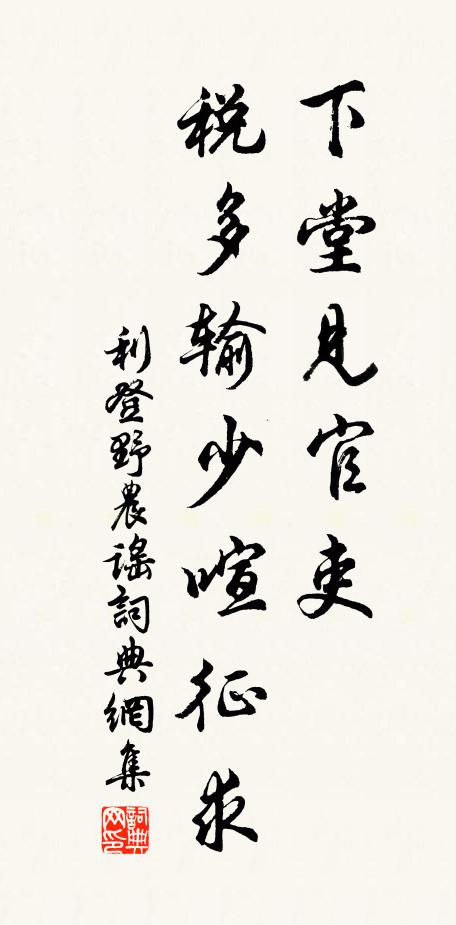 下堂見官吏
税多输少喧征求
利登野農謠詞典網集
詞典网印